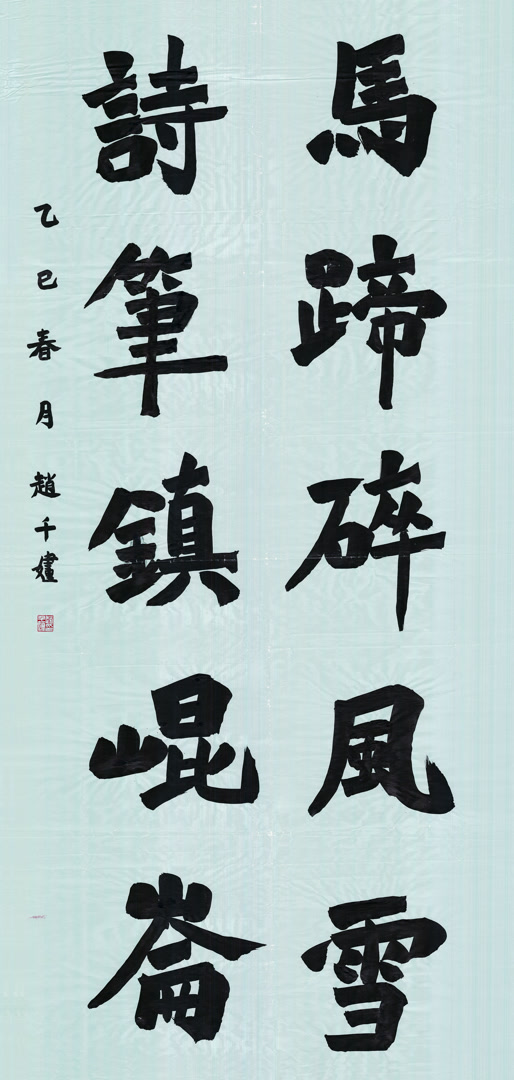 馬蹄碎風雪
詩筆鎮崐崙
乙巳春月趙千嬅